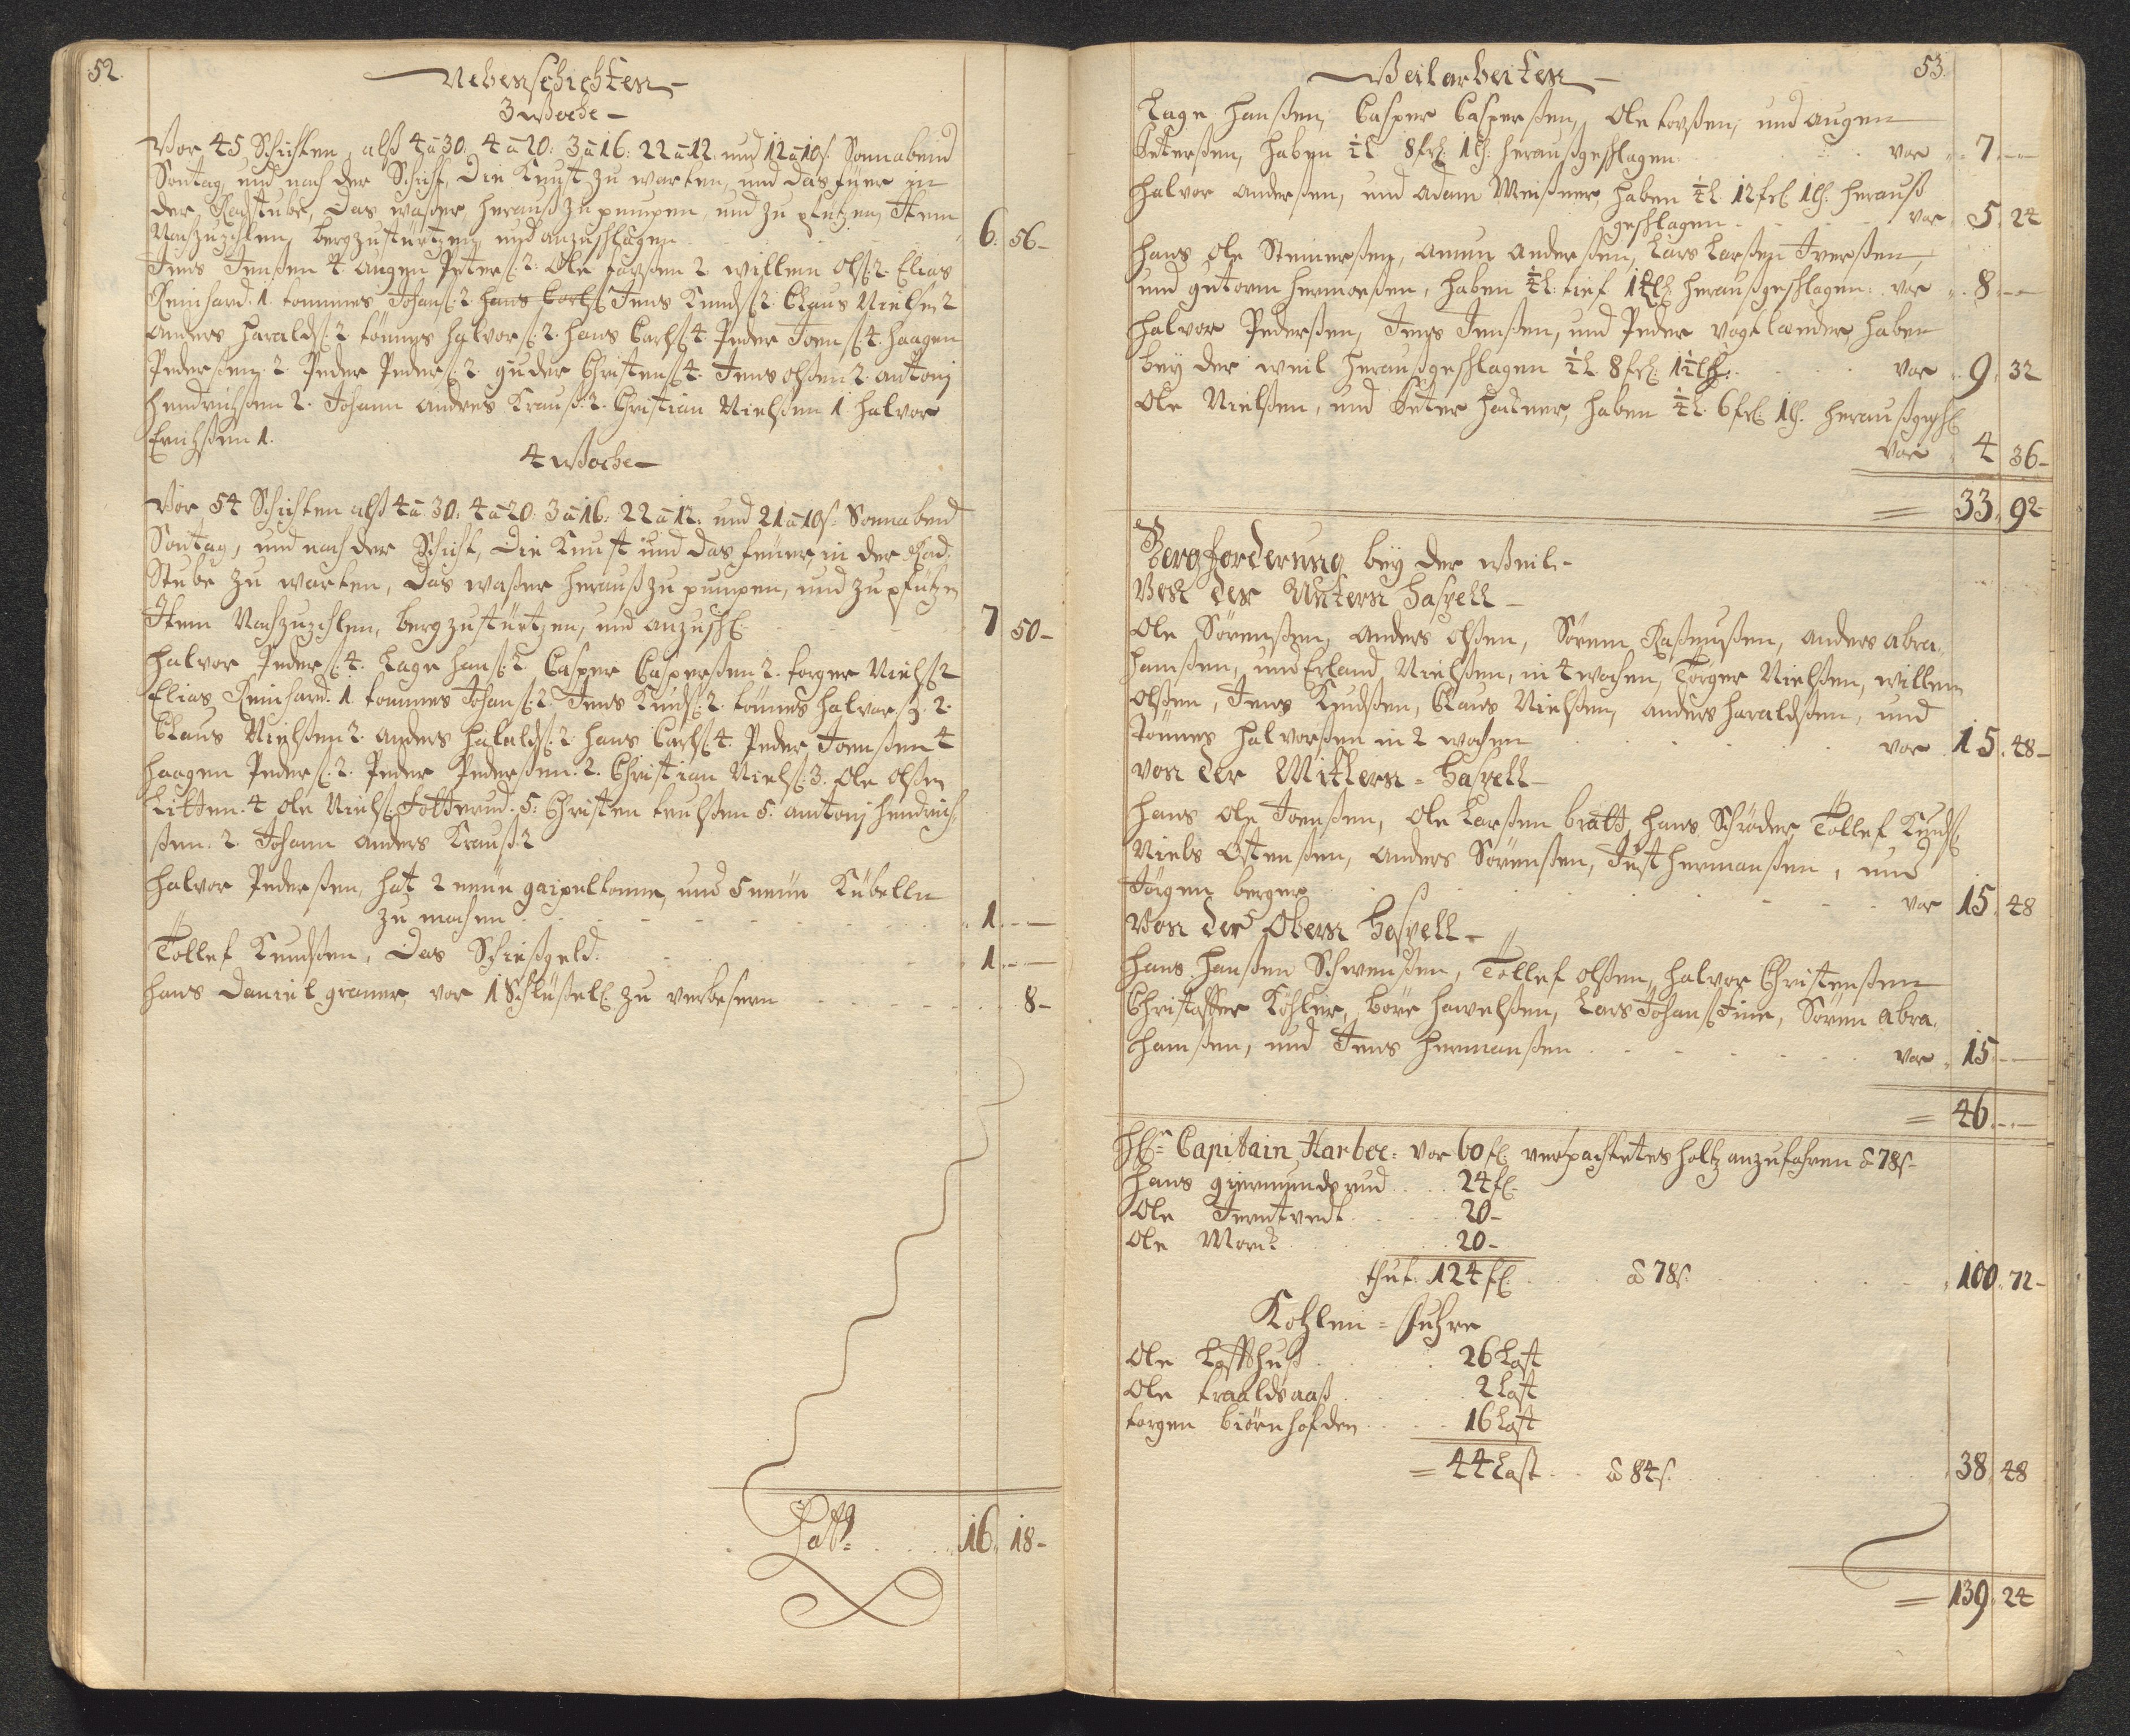 52.
Nebenschichten
3 Woche
Vor 45 Schichten alß 4 a 30. 4 a 20: 3 a 16: 22 a 12 und 12 a 10 s. Sonnabend
Sontag und nach der Schicht, die Kunst zu warten, und das füer in
der Radstube, das waßer herauß zu pumpen und zu pfützen Item
Nachzuzehlen, bergzustürtzen, und anzuschlagen 6. 56
Jens Jenßen 4. Augen Peters: 2. Ole torßen 2. willem Ols: 2. Elias
Reinhard. 1. tommes Johans: 2. hans Carls Jens Knuds: 2. Claus Nielsen 2
anders Haralds: 2 tönnes halvors: 2. hans Carls 4. Peder Joens: 4. haagen
Pederßen. 2. Peder Peders: 2. guder Christens 4. Jens olßen 2. antonj
hendrichßen 2. Johann andres Krauß. 2. Christian Nielßen 1 halvor
Erichßen 1.
4 Woche
Vor 54 Schichten alß 4 a 30. 4 a 20. 3 a 16: 22 a 12. und 21 a 10 s: Sonnabend
Sontag, und nach der Schicht, die Kunst und das feuer, in der Rad-
Stube zu warten, das waßer herauß zu pumpen, und zu pfützen
Item Nachzuzehlen, bergzustürtzen, und anzuschl: 7 50
halvor Peders: 4. Lage hanß: 2. Casper Casperßen 2. torger Niels 2
Elias Reinhard. 1. tommes Johans: 2. Jens Knuds: 2. tönnes halvors: 2.
Claus Nielßen 2. anders halalds: 2 hans Carls 4. Peder Joenßen 4
haagen Peders: 2. Peder Pederßen. 2. Christian Niels: 3. Ole olßen
Litten. 4 Ole Niels: Fotterud. 5: Christen truelßen 5. antonj hendrich-
ßen. 2. Johann anders Krauß. 2
halvor Pederßen, hat 2 neüe gaipeltonne, und 5 neüe Kübelln
zu machen 1.
Töllef Knudßen, das Schießgeld. 1.
hans Daniel graner, vor 1 Schlüßel: zu verbeßern 8
Latt. 16. 18
53.
Weilarbeiten
Lage Hanßen, Casper Casperßen, Ole torßen, und augen
Peterßen, haben ½ l 8 frl: 1 lh: heraußgeschlagen vor 7.
Halvor anderßen, und Adam Meißner haben ¼ l. 12 frl 1 lh. herauß
geschlagen vor 5 24
Hans Ole Steinerßen, amun anderßen, Lars Larßen Iverßen,
und gutorm hermoeßen, haben ½ l: tief heraußgeschlagen: vor 8
Halvor Pederßen, Jens Jenßen, und Peder Vogelaender haben
bey der weil heraußgeschlagen ½ l. 8 frl: 1½ lh: vor 9. 32
Ole Nielßen, und Peter hatner, haben ¼ l. 6 frl: 1 lh. heraußgeschl:
vor 4 36
33. 92
Bergforderung bey der Weil
Von der Untern Haspell
Ole Sörenßen, anders olßen, Sörenn Raßmußen, anders abra-
hamßen, und Erland Nielßen, in 4 wochen, Torger Nielßen, willem
Olßen, Jens Knudßen, Claus Nielßen, anders haraldßen, und
Tönnes halvorßen in 2 wochen vor 15. 48
Von der Mittlern-Haspell
Hans Ole Joenßen, Ole Larßen bratt, hans Schröder, Töllef Knuds:
Niels Östenßen, anders Sörenßen, Just hermanßen, und
Jörgen berger vor 15. 48
Von der Obern Haspell
Hans Hanßen Schwenßen, Töllef olßen, halvor Christenßen
Christoffer Köhler, börr hawelßen, Lars Johans Fine, Sören abra-
hamßen, und Jens hermanßen vor 15
46.
Hr: Capitain Harboe: vor 60 fl: verpachtetes holtz anzufahren a 78 s
Hans giermundsrud 24 fl:
Ole Terntvedt 20
Ole Moen? 20
thut: 124 fl: a 78 s. 100. 72
Kohlen-Fuhre
Ole Loffthuß 26 Last
Ole traaldsaaß 2 Last
torgen biörnhofden 16 Last
44 Last a 84 s. 38. 48
139. 24